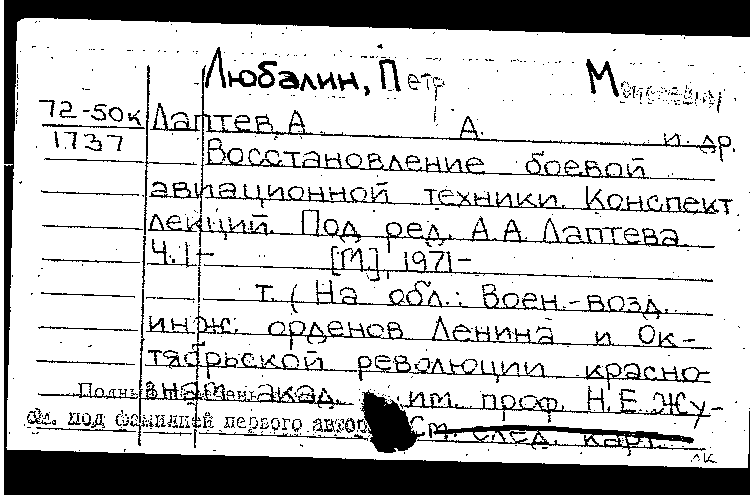 Любалин, Петр Моисеевич
72-50к Лаптев, А. А. и др.
1737
Восстановление боевой
авиационной техники. Конспект
лекций. Под ред. А.А. Лаптева.
Ч.1- [М], 1971-
т. (На обл.: Воен.-возд.
инж. орденов Ленина и Ок-
тябрьской революции красно-
знам. акад. им. проф. Н.Е. Жу-
См. под фамилией первого автора
См. след. карт.